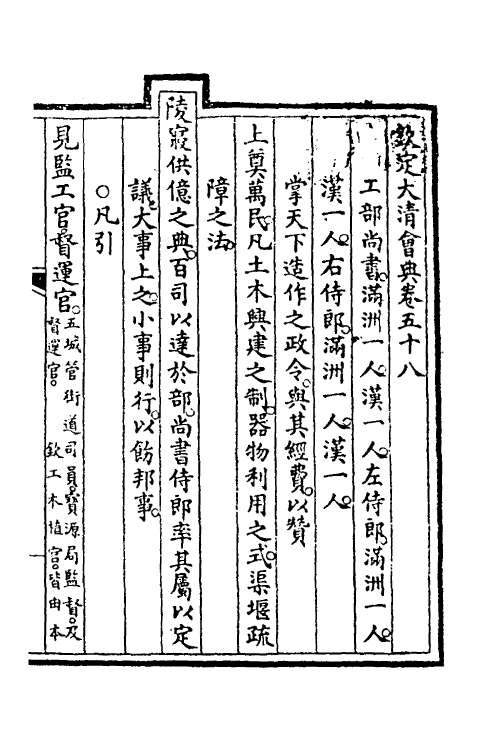 欽定大清會典卷五十八
工部尚書。滿洲一人。漢一人。左侍郎。滿洲一人。
漢一人。右侍郎。滿洲一人。漢一人。
掌天下造作之政令。與其經費。以贊
上奠萬民。凡土木興建之制。器物利用之式。渠堰疏
障之法。
陵寢供億之典。百司以達於部。尚書侍郎率其屬以定
議。大事上之。小事則行。以飭邦事。
○凡引
見監工官。督運官。五城管街道司員。寶源局監督。及
督運官。 欽工木植官。皆由本